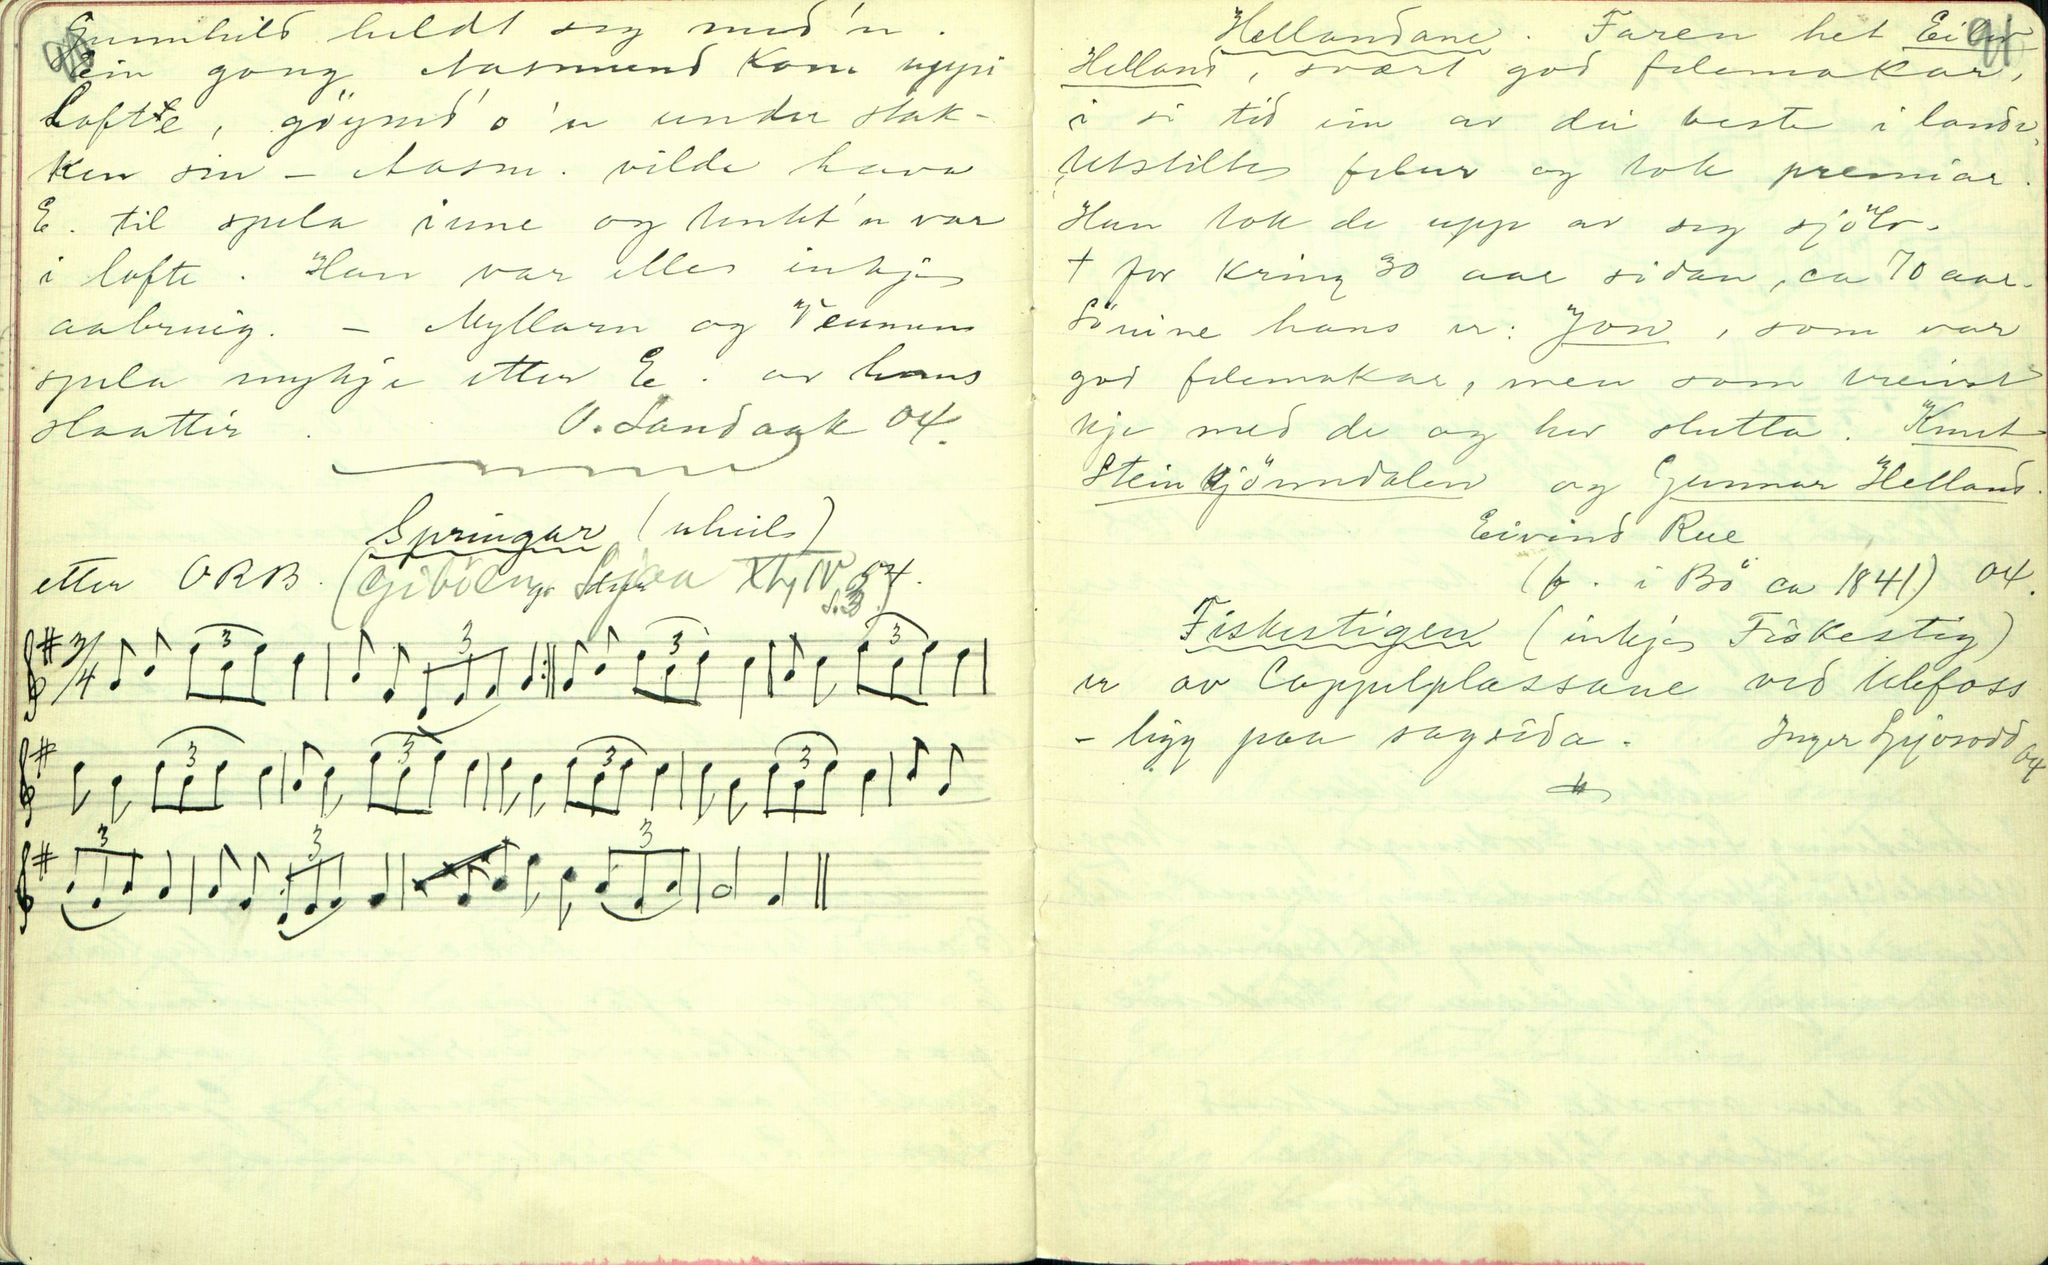 Gunnhild heldt seg med'n.
Ein gong Aasmund kom uppi
Lofte, göymd'o'n under stak-
ken sin – Aasm. vilde hava
E. til spela inne og tenkt'n var
i lofte. Han var elles inkje
aabruig. – Myllarn og Veumen
spela mykje etter E. av hans
slaattir. O. Sandaak 04.
Springar (uheil)
etter ORB. (Giböen XLIV, 54.
S. 3)
3/4 3 3 3 3
3 3 3 3
3 3 3
91
Hellandane. Faren het Eilev
Helland, svært god felemakar,
i si tid ein av dei beste i lande,
utstilte felur og tok premiar.
Han tok de upp av seg sjölv.
† for kring 30 aar sidan, ca 70 aar.
Sönine hans er: Jon, som var
god felemakar, men som treivst
kje med de og hev slutta. Knut
Steinkjönndalen og Gunnar Helland.
Eivind Rue
(f. i Bö ca 1841) 04.
Fiskestigen (inkje Fiskestig)
er av Cappelplassane ved Ulefoss
– ligg paa sagsida. Inger 04